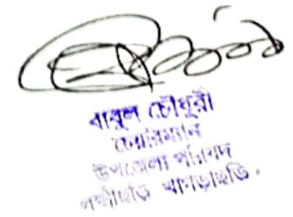 বাবুল চৌধুরী
চেয়ারম্যান
উপজেলা পরিষদ
লক্ষীছড়ি খাগড়াছড়ি।